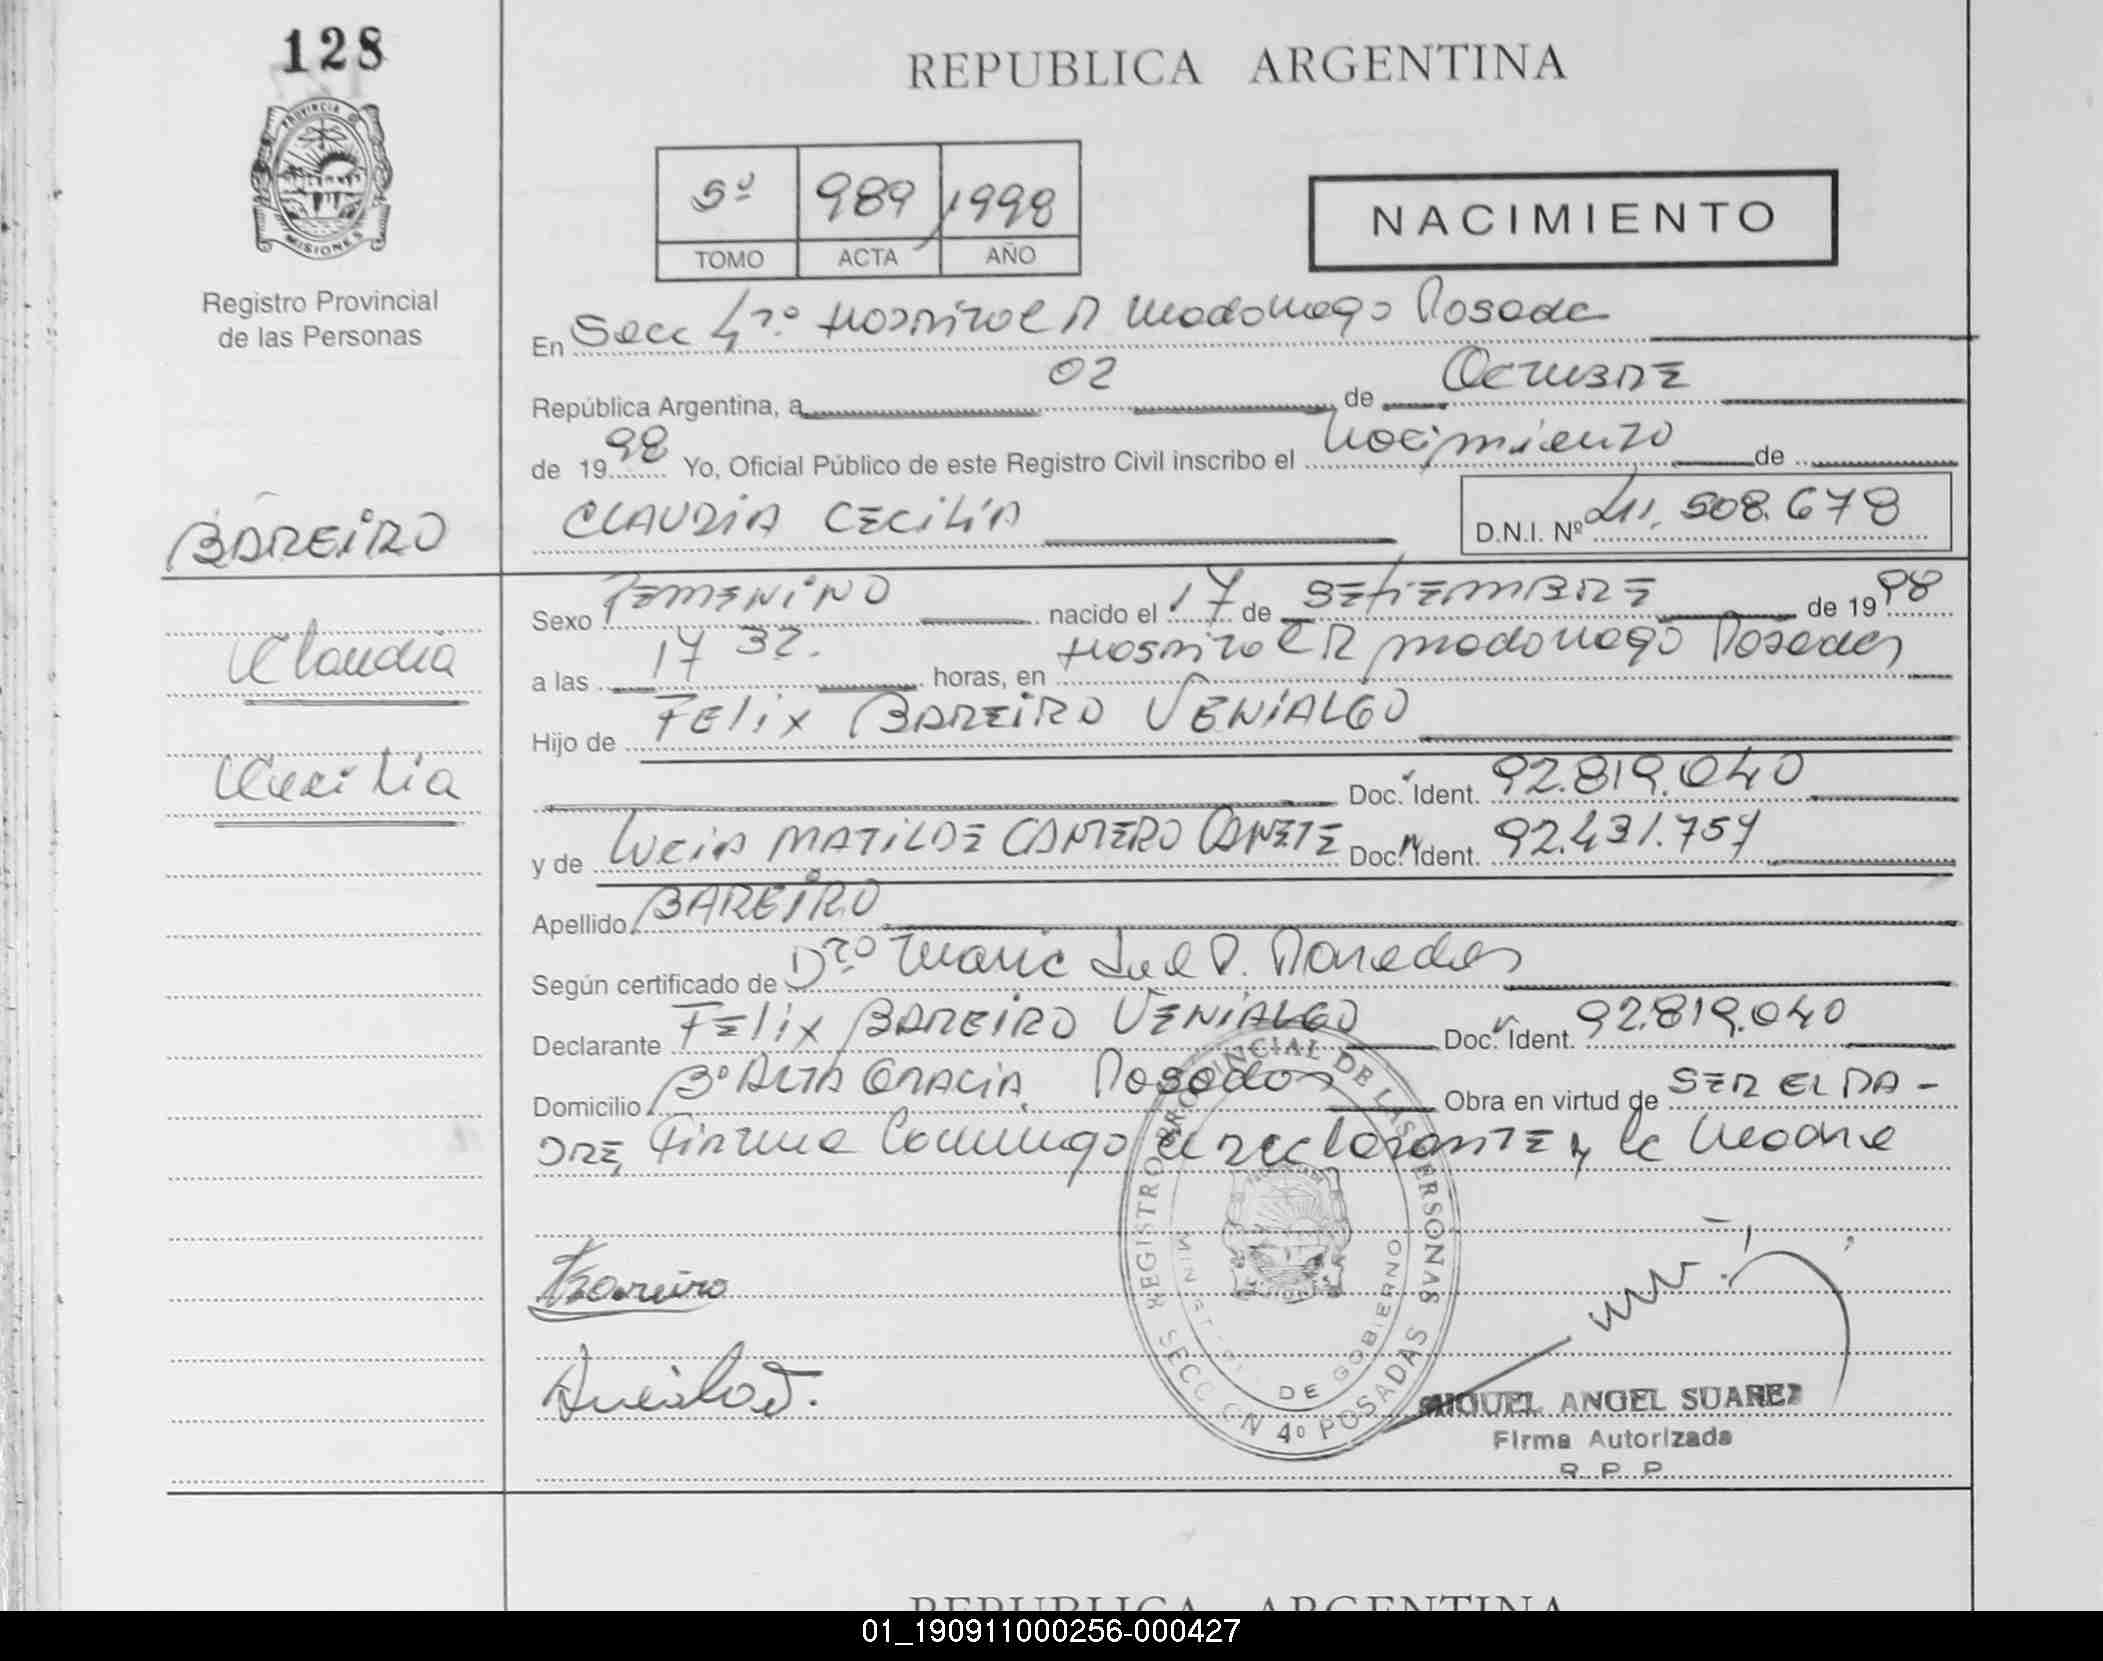 128
REPUBLICA ARGENTINA
PROVINCIA DE
MISIONES
Registro Provincial
de las Personas
5º 989 1998
TOMO ACTA AÑO
NACIMIENTO
En Secc 4ta. Hospital R Madariaga Posadas
República Argentina, a 02 de OCTUBRE
de 1998 Yo, Oficial Público de este Registro Civil inscribo el Nacimiento de
BAREIRO
CLAUDIA CECILIA
D.N.I. Nº 41.508.678
Claudia
Cecilia
Sexo FEMENINO nacido el 17 de SETIEMBRE de 1998
a las 17 32. horas, en Hospital R Madariaga Posadas
Hijo de FELIX BAREIRO VENIALGO
Doc. Ident. 92.819.040
y de LUCIA MATILDE CANTERO CAÑETE Doc. Ident. 92.431.757
Apellido BAREIRO
Según certificado de Dra Maria P. Paredes
Declarante FELIX BAREIRO VENIALGO Doc. Ident. 92.819.040
Domicilio Bº ALTA GRACIA, Posadas Obra en virtud de SER EL PA-
DRE, Firma Conmigo el declarante y la Madre
REGISTRO PROVINCIAL DE LAS PERSONAS
MINISTERIO DE GOBIERNO
SECCION 4º POSADAS
Bareiro
MIGUEL ANGEL SUAREZ
Firma Autorizada
R P P
REPUBLICA ARGENTINA
01_190911000256-000427